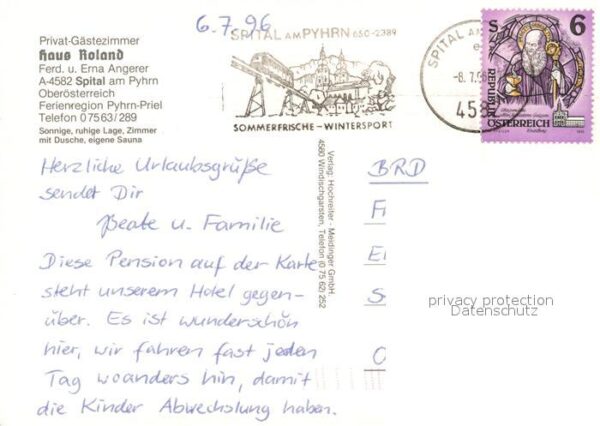 6.7.96
Privat-Gästezimmer
Haus Roland
Ferd. u. Erna Angerer
A-4582 Spital am Pyhrn
Oberösterreich
Ferienregion Pyhrn-Priel
Telefon 07563/289
Sonnige, ruhige Lage, Zimmer
mit Dusche, eigene Sauna
SPITAL AM PYHRN 650-2389
SOMMERFRISCHE-WINTERSPORT
SPITAL AM
-8.7.96
458
S 6
REPUBLIK
ÖSTERREICH
Herzliche Urlaubsgrüße
sendet Dir
Beate u. Familie
Diese Pension auf der Karte
steht unserem Hotel gegen-
über. Es ist wunderschön
hier, wir fahren fast jeden
Tag woanders hin, damit
die Kinder Abwechslung haben.
Verlag: Hochreiter - Meidinger GmbH
4580 Windischgarsten, Telefon (0 75 62) 252
BRD
privacy protection
Datenschutz